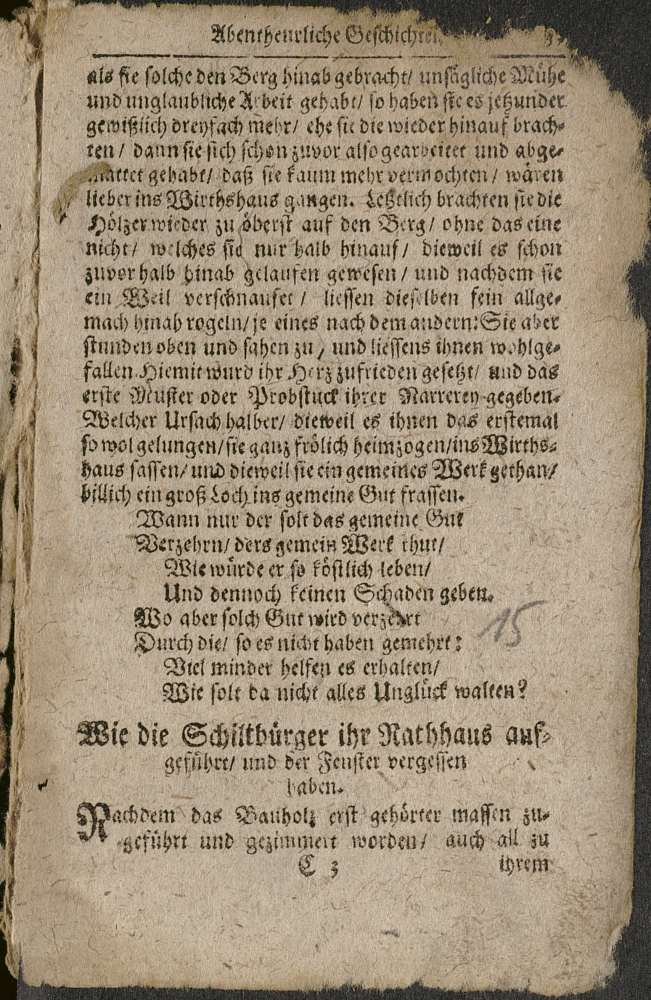 Abentheurliche Geschichten
als sie solche den Berg hinab gebracht/ unsägliche Mühe
und unglaubliche Arbeit gehabt/ so haben sie es jetzunder
gewißlich dreyfach mehr/ ehe sie die wieder hinauf brach-
ten/ dann sie sich schon zuvor also gearbeitet und abge-
mattet gehabt/ daß sie kaum mehr vermochten/ wären
lieber ins Wirthshaus gangen. Letztlich brachten sie die
Hölzer wieder zu öberst auf den Berg/ ohne das eine
nicht/ welches sie nur halb hinauf/ dieweil es schon
zuvor halb hinab gelaufen gewesen/ und nachdem sie
ein Weil verschnaufet/ liessen dieselben fein allge-
mach hinab rogeln/ je eines nach dem andern: Sie aber
stunden oben und sahen zu/ und liessens ihnen wohlge-
fallen. Hiemit wurd ihr Herz zufrieden gesetzt/ und das
erste Muster oder Probstuck ihrer Narrerey gegeben.
Welcher Ursach halber/ dieweil es ihnen das erstemal
so wol gelungen/ sie ganz frölich heimzogen/ ins Wirths-
haus sassen/ und dieweil sie ein gemeines Werk gethan/
billich ein groß Loch ins gemeine Gut frassen.
Wann nur der solt das gemeine Gut
Verzehrn/ ders gemein Werk thut/
Wie würde er so köstlich leben/
Und dennoch keinen Schaden geben.
Wo aber solch Gut wird verzehrt
Durch die/ so es nicht haben gemehrt:
15
Viel minder helfen es erhalten/
Wie solt da nicht alles Unglück walten?
Wie die Schiltbürger ihr Rathhaus auf-
geführt/ und der Fenster vergessen
haben.
Nachdem das Bauholz erst gehörter massen zu-
geführt und gezimmert worden/ auch all zu
C 3
ihrem